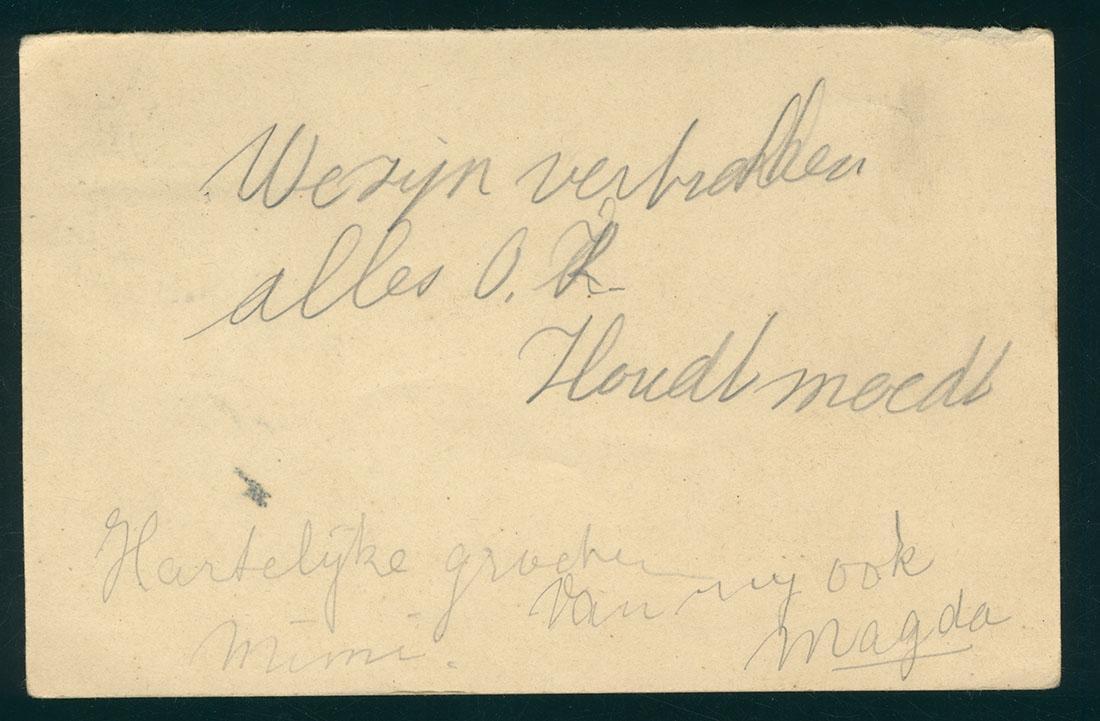 We zijn vertrokken
alles O.K.
Houdt moedt
Hartelijke groeten
Mimi.
Van my ook
Magda